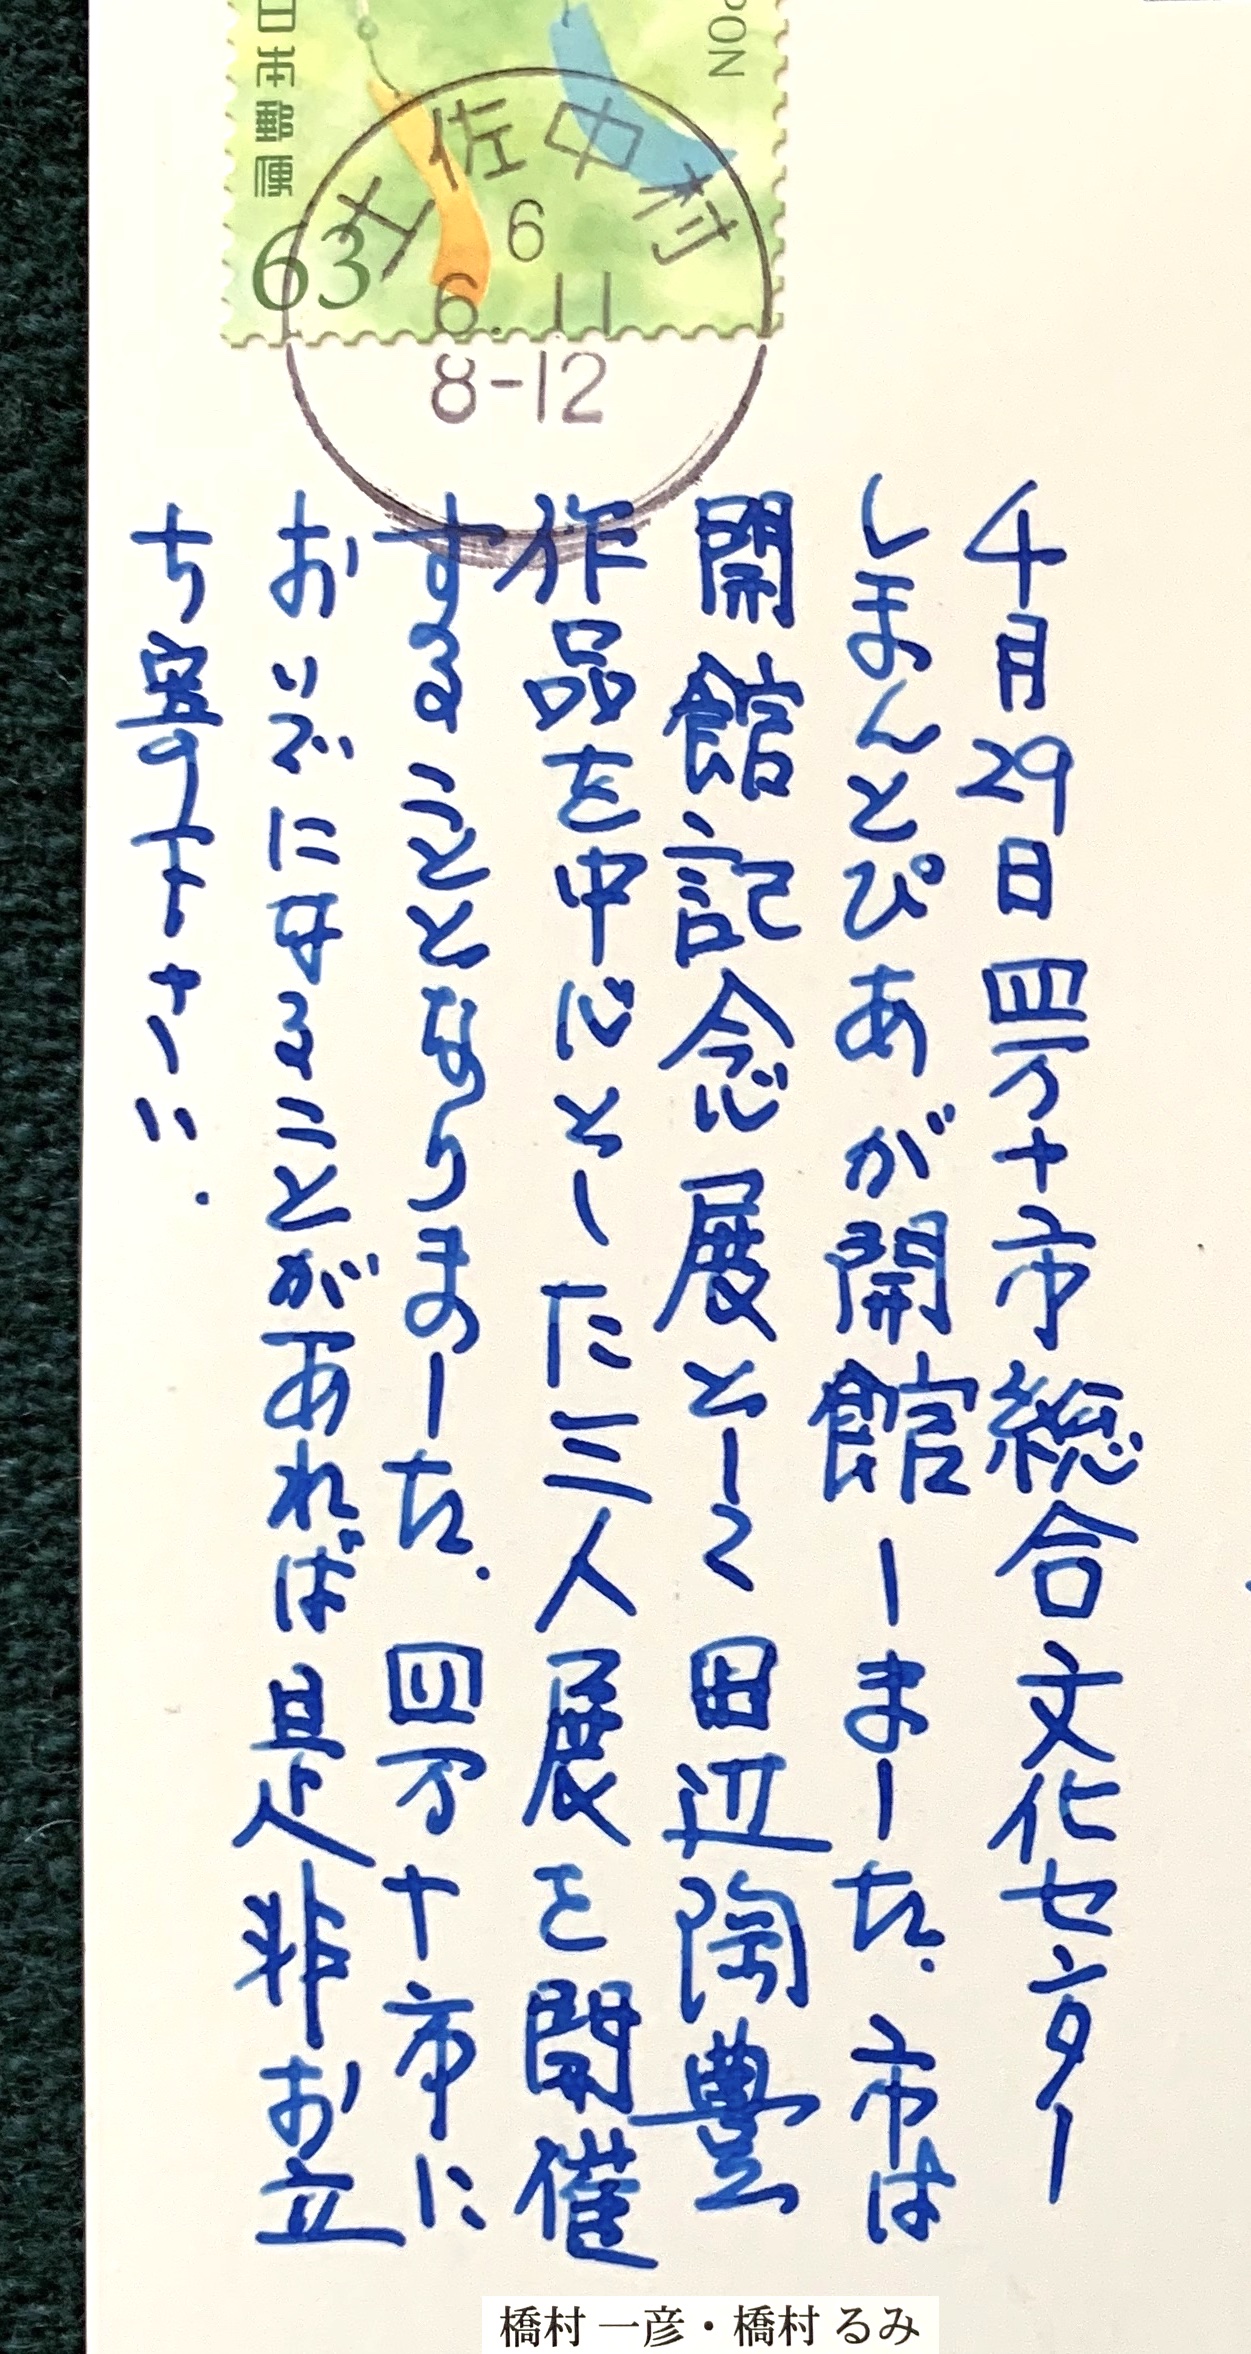 日本郵便
63
土佐中村
6
6.11
8-12
4月29日 四万十市総合文化センター
しまんとぴあが開館しました.市は
開館記念展として田辺陶豊
作品を中心とした三人展を開催
することとなりました.四万十市に
おいでになることがあれば是非お立
ち寄り下さい.
橋村 一彦・橋村 るみ